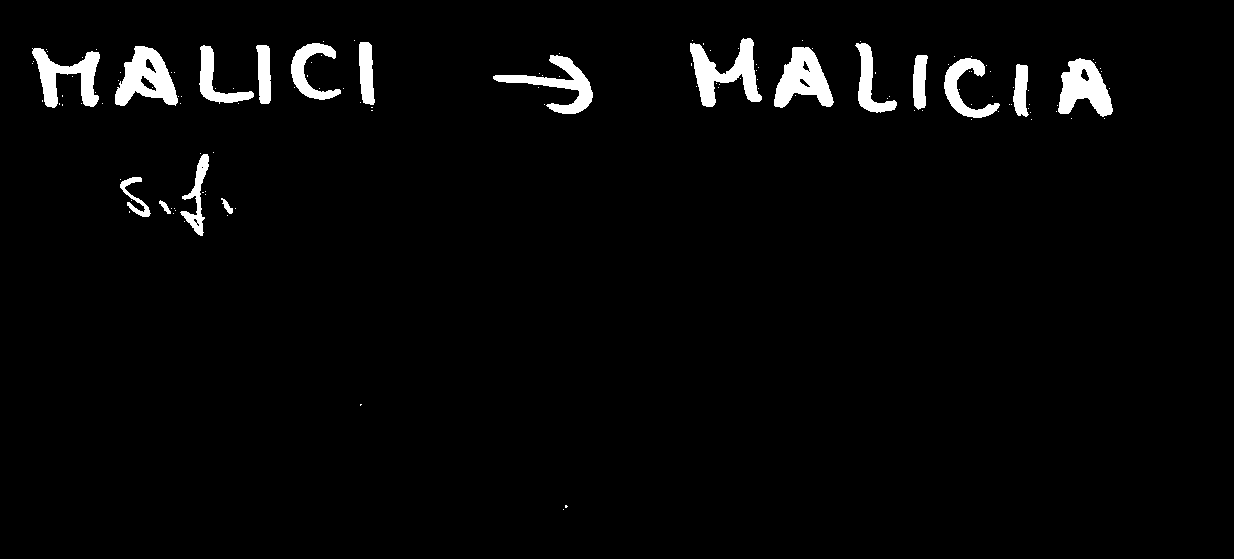 MALICI → MALICIA
s.f.